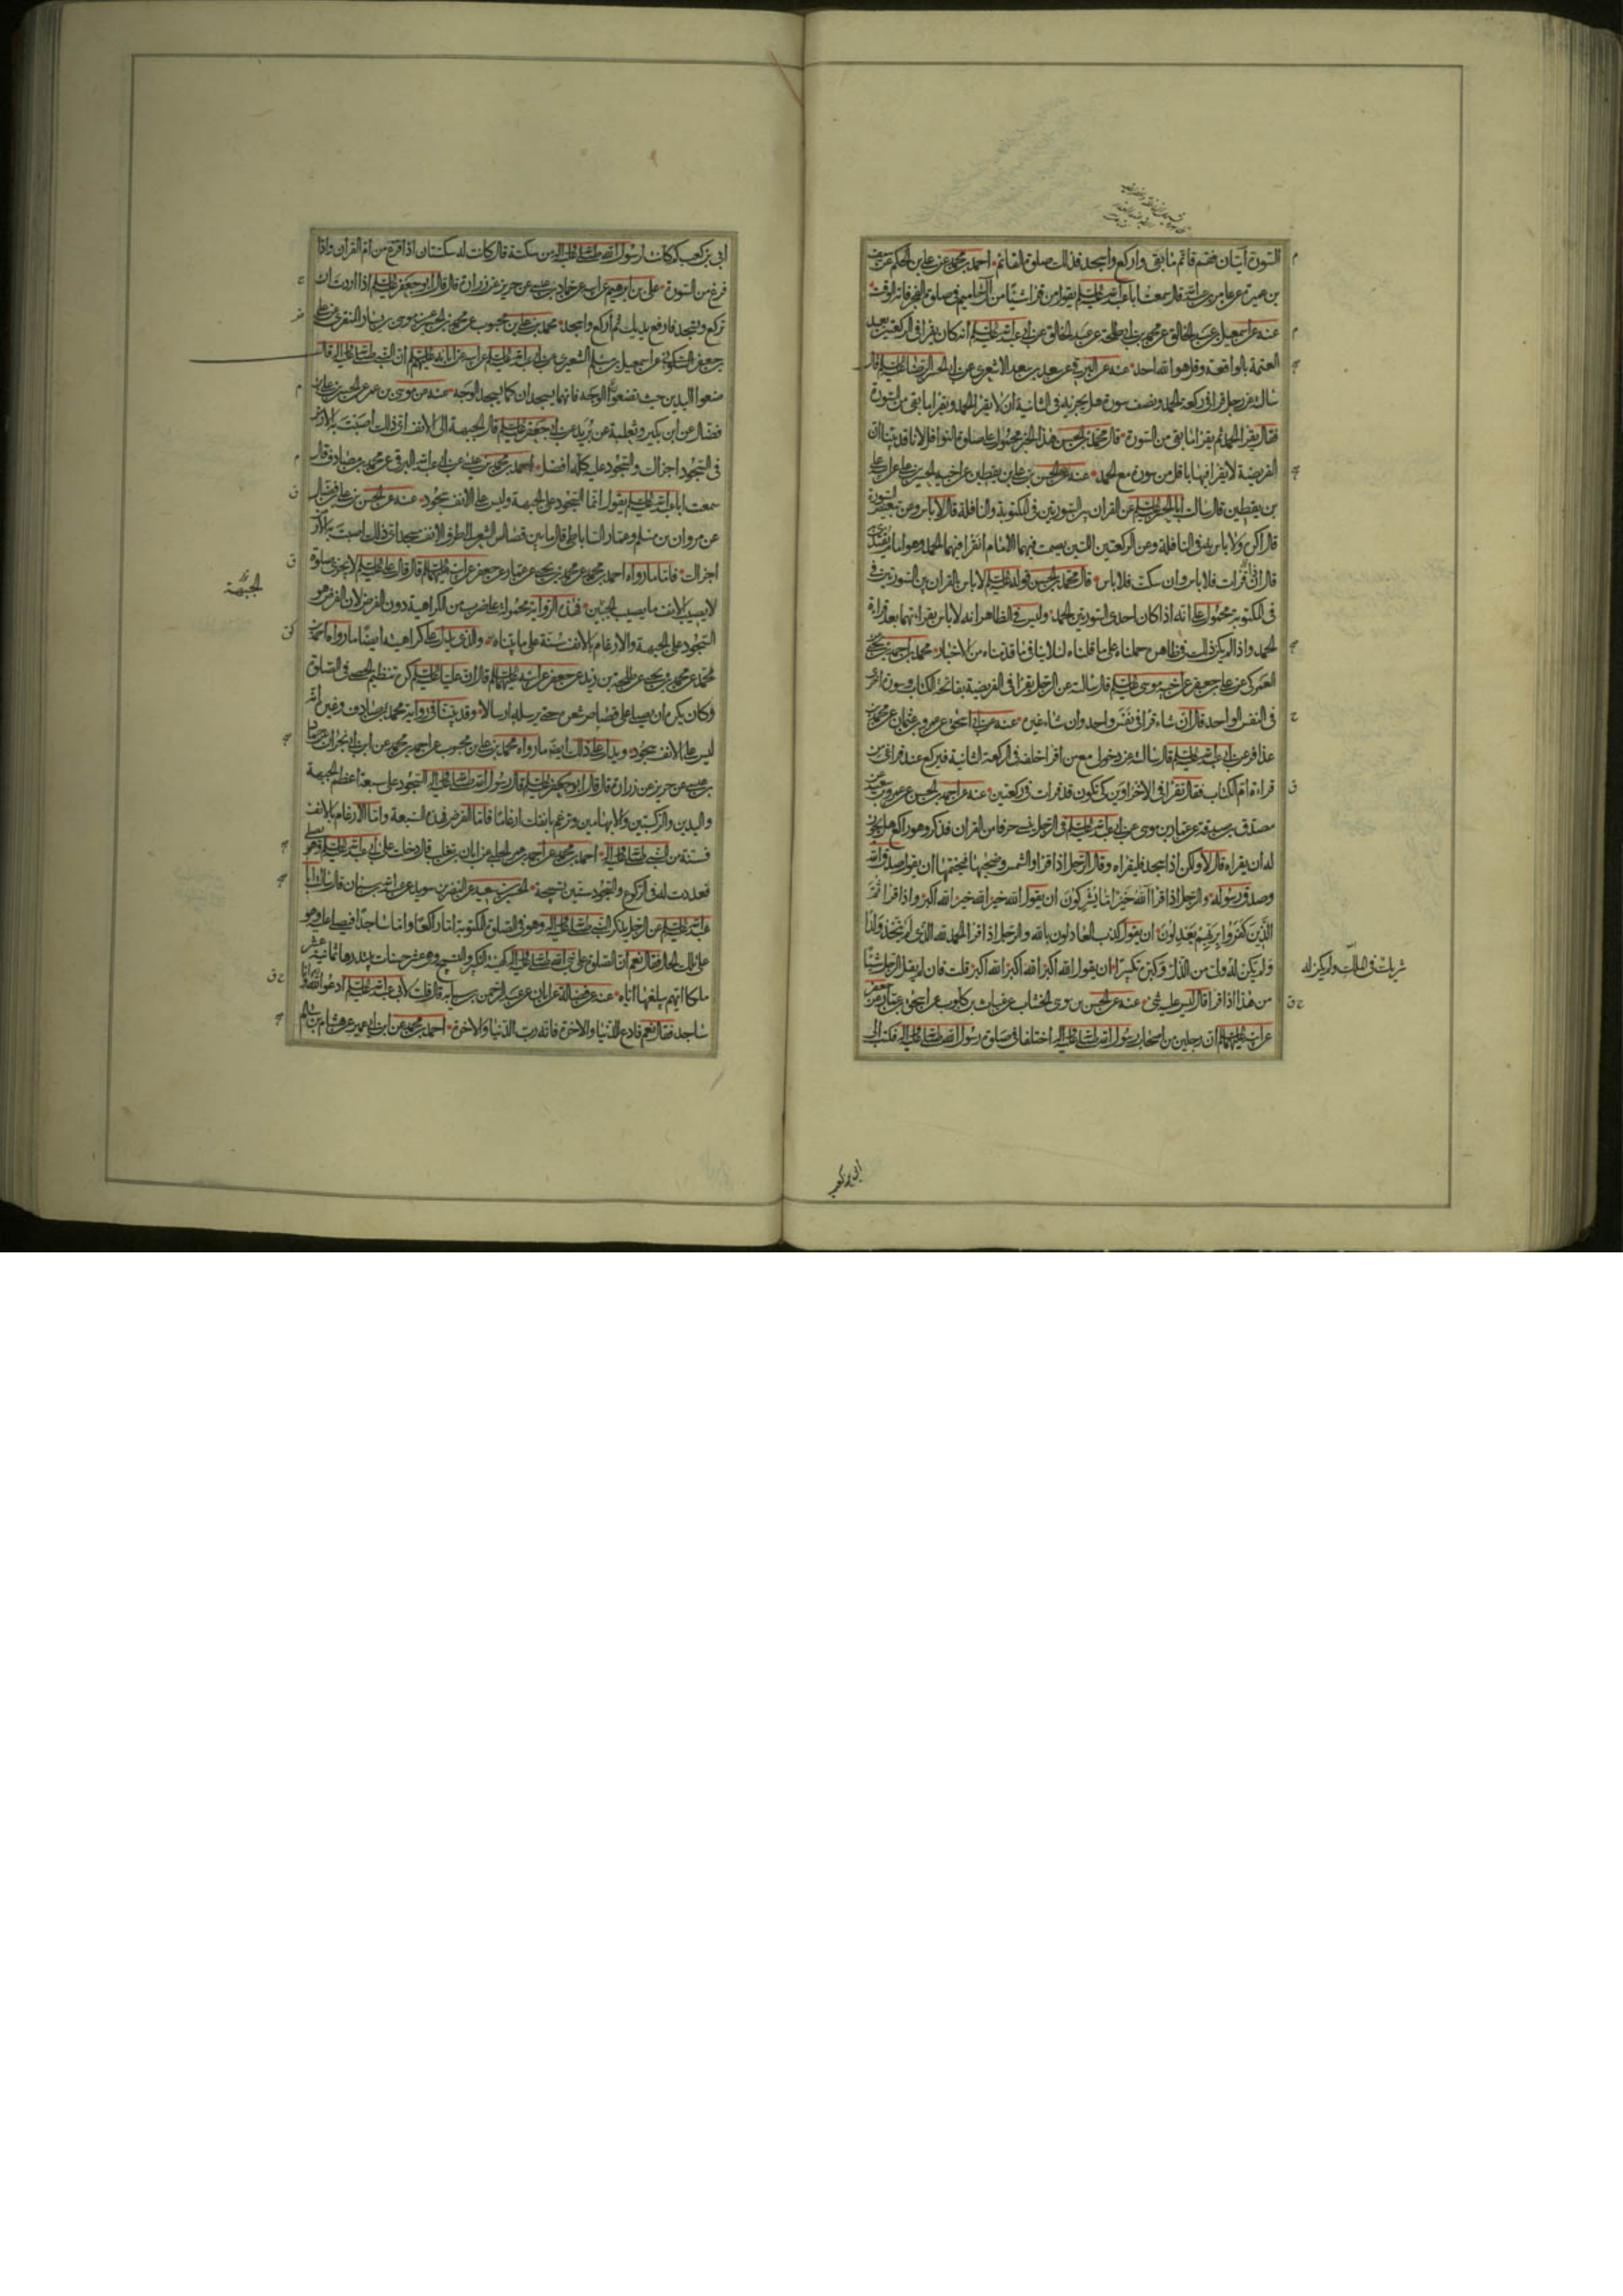 السورة آيتان فقم فاتم ما بقى واركع واسجد فذلك صلوة القائم احمد بن محمد عن علي بن الحكم عن سيف
بن عميرة عن عامر بن عبد الله قال سمعت ابا عبد الله عليه السلم يقول من قرا شيئا من آل حاميم في صلوة الفجر فاته الوقت
عنه عن اسمعيل بن عبد الخالق عن محمد بن ابي طلحة عن عبد الخالق عن ابي عبد الله عليه السلم انه كان يقرا في الركعتين بعد
العتمة بالواقعة وقل هو الله احد عنه عن البرقي عن سعد بن سعد الاشعري عن ابي الحسن الرضا عليه السلم قال
سالته عن رجل قرا في ركعة الحمد ونصف سورة هل يجزيه في الثانية ان لا يقرا الحمد ويقرا ما بقى من السورة
فقال يقرا الحمد ثم يقرا ما بقى من السورة قال محمد بن الحسن هذا الخبر محمول على صلوة النوافل لانا قد بينا ان
الفريضة لا يقرا فيها باقل من سورة مع الحمد عنه عن الحسن بن علي بن يقطين عن اخيه الحسين بن علي عن علي
بن يقطين قال سالت ابا الحسن عليه السلم عن القران بين السورتين في المكتوبة والنافلة قال لا باس وعن تبعيض السورة
قال اكره ولا باس به في النافلة وعن الركعتين اللتين يصمت فيهما الامام انقرا فيهما بالحمد وهو امام يقتدى به
قال ان قرات فلا باس وان سكت فلا باس قال محمد بن الحسن قوله عليه السلم لا باس بالقران بين السورتين في
في المكتوبة محمول على انه اذا كان احدى السورتين الحمد وليس في الظاهر انه لا باس بقرائتهما بعد قراءة
الحمد واذا لم يكن ذلك في ظاهره حملناه على ما قلناه لئلا ينافي ما قدمناه من الاخبار محمد بن احمد بن يحيى
العمركي عن علي بن جعفر عن اخيه موسى عليه السلم قال سالته عن الرجل يقرا في الفريضة بفاتحة الكتاب وسورة اخرى
في النفس الواحد قال ان شاء قرا في نفس واحد وان شاء غيره عنه عن ابي اسحق عن عمرو بن عثمان عن محمد بن
عذافر عن ابي عبد الله عليه السلم قال سالته عن دخولي مع من اقرا خلفه في الركعة الثانية فيركع عند فراغي من
قراءة ام الكتاب فقال تقرا في الاخراوين كي تكون قد قرات في ركعتين عنه عن احمد بن الحسن عن عمرو بن سعيد عن
مصدق بن صدقة عن عمار بن موسى عن ابي عبد الله عليه السلم في الرجل ينسى حرفا من القران فذكر وهو راكع هل يجوز
له ان يقراه قال لا ولكن اذا سجد فليقراه وقال الرجل اذا قرا والشمس وضحيها فيختمها ان يقول صدق الله
وصدق رسوله والرجل اذا قرا آلله خير اما يشركون ان يقول الله خير الله خير الله اكبر واذا قرا ثم
الذين كفروا بربهم يعدلون ان يقول كذب العادلون بالله والرجل اذا قرا الحمد لله الذي لم يتخذ ولدا
ولم يكن له ولي من الذل وكبره تكبيرا ان يقول الله اكبر الله اكبر الله اكبر قلت فان لم يقل الرجل شيئا
شريك في الملك ولم يكن له
من هذا اذا قرا قال ليس عليه شئ عنه عن الحسن بن موسى الخشاب عن غياث بن كلوب عن اسحق بن عمار عن جعفر
عن ابيه عليهما السلم ان رجلين من اصحاب رسول الله صلى الله عليه واله اختلفا في صلوة رسول الله صلى الله عليه واله فكتب الى
ابي بن كعب
ابي بن كعب كم كانت لرسول الله صلى الله عليه واله من سكتة قال كانت له سكتتان اذا فرغ من ام القران واذا
فرغ من السورة علي بن ابرهيم عن ابيه عن حماد بن عيسى عن حريز عن زرارة قال قال ابو جعفر عليه السلم اذا اردت ان
تركع وتسجد فارفع يديك ثم اركع واسجد محمد بن علي بن محبوب عن محمد بن الحسن عن موسى بن يسار المنقري عن علي
بن جعفر السكوني عن اسمعيل بن مسلم الشعيري عن ابي عبد الله عليه السلم عن ابيه عن ابائه عليهم السلم ان النبي صلى الله عليه واله قال
ضعوا اليدين حيث تضعوا الوجه فانهما يسجدان كما يسجد الوجه عنه عن موسى بن عمر عن الحسن بن علي بن
فضال عن ابن بكير وثعلبة عن بريد عن ابي جعفر عليه السلم قال الجبهة الى الانف اي ذلك اصبت به الارض
في السجود اجزاك والسجود عليه كله افضل احمد بن محمد بن عيسى عن ابي عبد الله البرقي عن محمد بن مصادف قال
سمعت ابا عبد الله عليه السلم يقول انما السجود على الجبهة وليس على الانف سجود عنه عن الحسن بن علي بن فضال
عن مروان بن مسلم وعمار الساباطي قال ما بين قصاص الشعر الى طرف الانف مسجد اي ذلك اصبت به الارض
اجزاك فاما ما رواه احمد بن محمد عن محمد بن يحيى عن عمار عن جعفر عن ابيه عليهما السلم قال قال علي عليه السلم لا يجزى صلوة
لا يصيب الانف ما يصيب الجبين فهذه الرواية محمولة على ضرب من الكراهية دون الفرض لان الفرض هو
الجبهة
السجود على الجبهة والارغام بالانف سنة على ما بيناه والذي يدل على كراهيته ايضا ما رواه احمد بن
محمد عن محمد بن يحيى عن طلحة بن زيد عن جعفر عن ابيه عليهما السلم قال ان عليا عليه السلم كره تنظيم الحصى في الصلوة
وكان يكره ان يصلي على قصاص شعره حتى يرسله ارسالا وقد بينا في رواية محمد بن مصادف وغيره انه
ليس على الانف سجود ويدل على ذلك ايضا ما رواه محمد بن علي بن محبوب عن احمد بن محمد عن ابن ابي نجران عن حماد
بن عيسى عن حريز عن زرارة قال قال ابو جعفر عليه السلم قال رسول الله صلى الله عليه واله السجود على سبعة اعظم الجبهة
واليدين والركبتين والابهامين وترغم بانفك ارغاما فاما الفرض فهذه السبعة واما الارغام بالانف
فسنة من النبي صلى الله عليه واله احمد بن محمد عن احمد بن عمر الحلبي عن ابان بن تغلب قال دخلت على ابي عبد الله عليه السلم وهو يصلي
فعددت له في الركوع والسجود ستين تسبيحة الحسين بن سعيد عن النضر بن سويد عن عبد الله بن سنان قال سالت ابا
عبد الله عليه السلم عن الرجل يذكر النبي صلى الله عليه واله وهو في الصلوة المكتوبة اما راكعا واما ساجدا فيصلي عليه وهو
على تلك الحال فقال نعم ان الصلوة على نبي الله صلى الله عليه واله كهيئة التكبير والتسبيح وهي عشر حسنات يبتدرها ثمانية عشر
ملكا ايهم يبلغها اياه عنه عن فضالة عن ابان عن عبد الرحمن بن سيابة قال قلت لابي عبد الله عليه السلم ادعو الله وانا
ساجد فقال نعم فادع للدنيا والاخرة فانه رب الدنيا والاخرة احمد بن محمد عن ابن ابي عمير عن هشام بن سالم